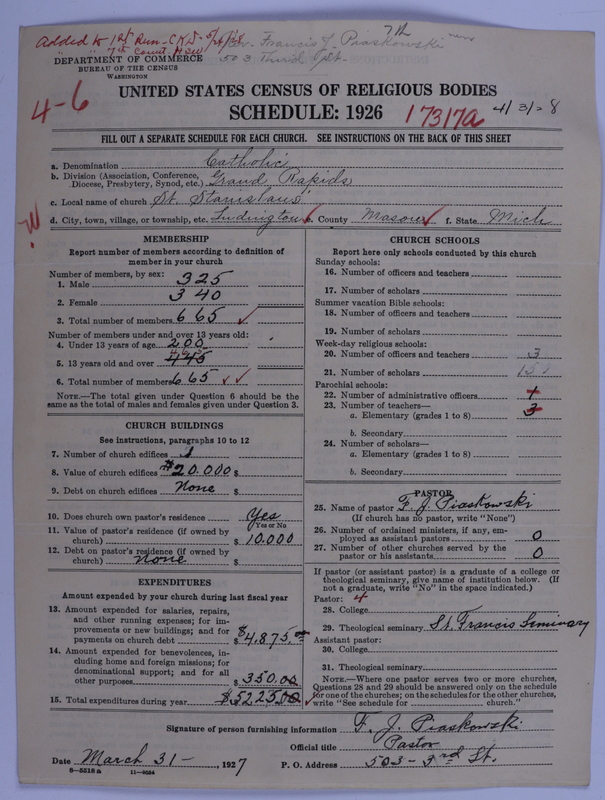 Added to 1st Run - C.K.S. - 5/24/28
7th Count. HSW
7th
Rev. Francis J. Piaskowski
503 Third St.
DEPARTMENT OF COMMERCE
BUREAU OF THE CENSUS
WASHINGTON
4-6
UNITED STATES CENSUS OF RELIGIOUS BODIES
SCHEDULE: 1926
17317a
4/3/-8
FILL OUT A SEPARATE SCHEDULE FOR EACH CHURCH. SEE INSTRUCTIONS ON THE BACK OF THIS SHEET
a. Denomination Catholic
b. Division (Association, Conference, Diocese, Presbytery, Synod, etc.) Grand Rapids
c. Local name of church St. Stanislaus'
d. City, town, village, or township, etc. Ludington e. County Mason f. State Mich
MEMBERSHIP
Report number of members according to definition of
member in your church
Number of members, by sex:
1. Male 325
2. Female 340
3. Total number of members 665
Number of members under and over 13 years old:
4. Under 13 years of age 200
5. 13 years old and over 445
6. Total number of members 665
NOTE.—The total given under Question 6 should be
same as the total of males and females given under Question 3.
CHURCH BUILDINGS
See instructions, paragraphs 10 to 12
7. Number of church edifices 1
8. Value of church edifices $20.000 $
9. Debt on church edifices None $
10. Does church own pastor's residence Yes
Yes or No
11. Value of pastor's residence (if owned by
church) $ 10.000
12. Debt on pastor's residence (if owned by
church) none $
EXPENDITURES
Amount expended by your church during last fiscal year
13. Amount expended for salaries, repairs,
and other running expenses; for im-
provements or new buildings; and for
payments on church debt $4,875.00
14. Amount expended for benevolences, in-
cluding home and foreign missions; for
denominational support; and for all
other purposes $ 350.00
15. Total expenditures during year $5225.00
CHURCH SCHOOLS
Report here only schools conducted by this church
Sunday schools:
16. Number of officers and teachers
17. Number of scholars
Summer vacation Bible schools:
18. Number of officers and teachers
19. Number of scholars
Week-day religious schools:
20. Number of officers and teachers 3
21. Number of scholars
Parochial schools:
22. Number of administrative officers 1
23. Number of teachers—
a. Elementary (grades 1 to 8) 3
b. Secondary
24. Number of scholars—
a. Elementary (grades 1 to 8)
b. Secondary
PASTOR
25. Name of pastor F. J. Piaskowski
(If church has no pastor, write "None")
26. Number of ordained ministers, if any, em-
ployed as assistant pastors 0
27. Number of other churches served by the
pastor or his assistants 0
If pastor (or assistant pastor) is a graduate of a college or
theological seminary, give name of institution below. (If
not a graduate, write "No" in the space indicated.)
Pastor: 4
28. College
29. Theological seminary St. Francis Seminary
Assistant pastor:
30. College
31. Theological seminary
NOTE.—Where one pastor serves two or more churches,
Questions 28 and 29 should be answered only on the schedule
for one of the churches; on the schedules for the other churches,
write "See schedule for church."
Signature of person furnishing information F. J. Piaskowski
Official title Pastor
Date March 31 - , 1927 P. O. Address 503 - 3rd St.
6—5518 a 11—9054